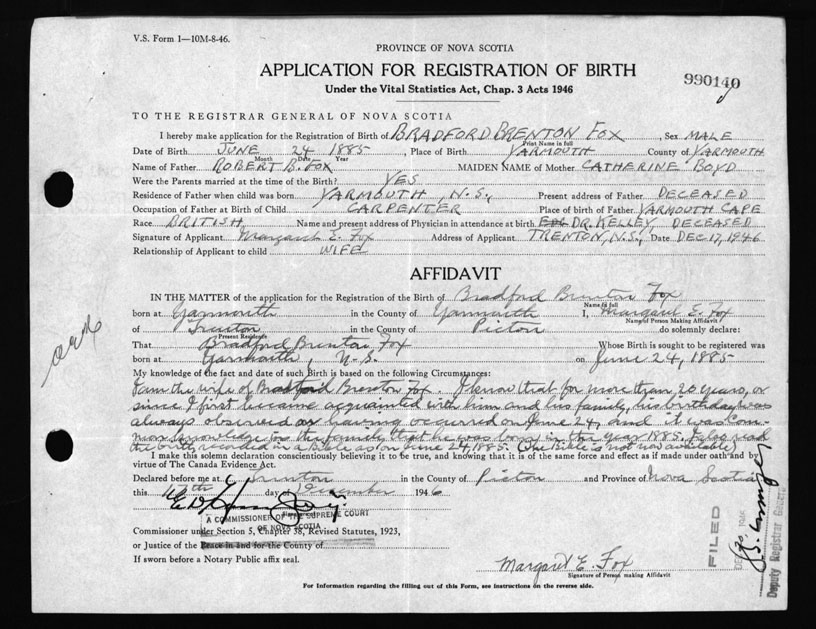 V.S. Form 1—10M-8-46.
PROVINCE OF NOVA SCOTIA
APPLICATION FOR REGISTRATION OF BIRTH
990140
Under the Vital Statistics Act, Chap. 3 Acts 1946
TO THE REGISTRAR GENERAL OF NOVA SCOTIA
I hereby make application for the Registration of Birth of BRADFORD BRENTON FOX, Sex MALE
Print Name in full
Date of Birth JUNE 24 1885, Place of Birth YARMOUTH County of YARMOUTH
Month Date Year
Name of Father ROBERT B. FOX MAIDEN NAME of Mother CATHERINE BOYD
Were the Parents married at the time of Birth? YES
Residence of Father when child was born YARMOUTH, N.S., Present address of Father DECEASED
Occupation of Father at Birth of Child CARPENTER Place of birth of Father YARMOUTH CAPE
Race BRITISH Name and present address of Physician in attendance at birth DR. KELLEY, DECEASED
Signature of Applicant Margaret E. Fox Address of Applicant TRENTON, N.S., Date DEC 17, 1946
Relationship of Applicant to child WIFE
AFFIDAVIT
IN THE MATTER of the application for the Registration of the Birth of Bradford Brenton Fox
Name in full
born at Yarmouth in the County of Yarmouth I, Margaret E. Fox
Name of Person Making Affidavit
of Trenton in the County of Pictou do solemnly declare:
Present Residence
That Bradford Brenton Fox Whose Birth is sought to be registered was
born at Yarmouth, N.S. on June 24, 1885
My knowledge of the fact and date of such Birth is based on the following Circumstances:
I am the wife of Bradford Brenton Fox. I know that for more than 20 years, or
since I first became acquainted with him and his family, his birthday was
always observed as having occurred on June 24, and it was com-
mon knowledge in the family that he was born in the year 1885. I also read
the birth recorded in a Bible as on June 24, 1885. (The Bible is not now available)
I make this solemn declaration conscientiously believing it to be true, and knowing that it is of the same force and effect as if made under oath and by
virtue of The Canada Evidence Act.
Declared before me at Trenton in the County of Pictou and Province of Nova Scotia
this day of December 1946
A COMMISSIONER OF THE SUPREME COURT
OF NOVA SCOTIA
Commissioner under Section 5, Chapter 38, Revised Statutes, 1923,
or Justice of the Peace in and for the County of
If sworn before a Notary Public affix seal.
Margaret E. Fox
Signature of Person making Affidavit
For Information regarding the filling out of this Form, see instructions on the reverse side.
FILED
Deputy Registrar General